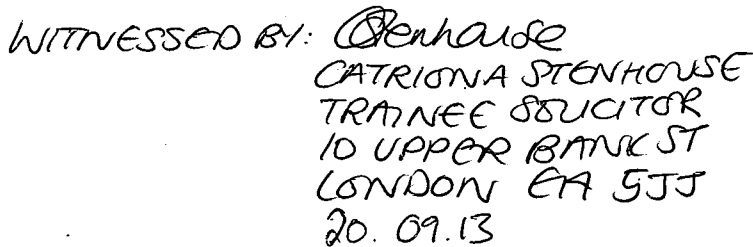 WITNESSED BY: CStenhouse
CATRIONA STENHOUSE
TRAINEE SOLICITOR
10 UPPER BANK ST
LONDON E14 5JJ
20.09.13